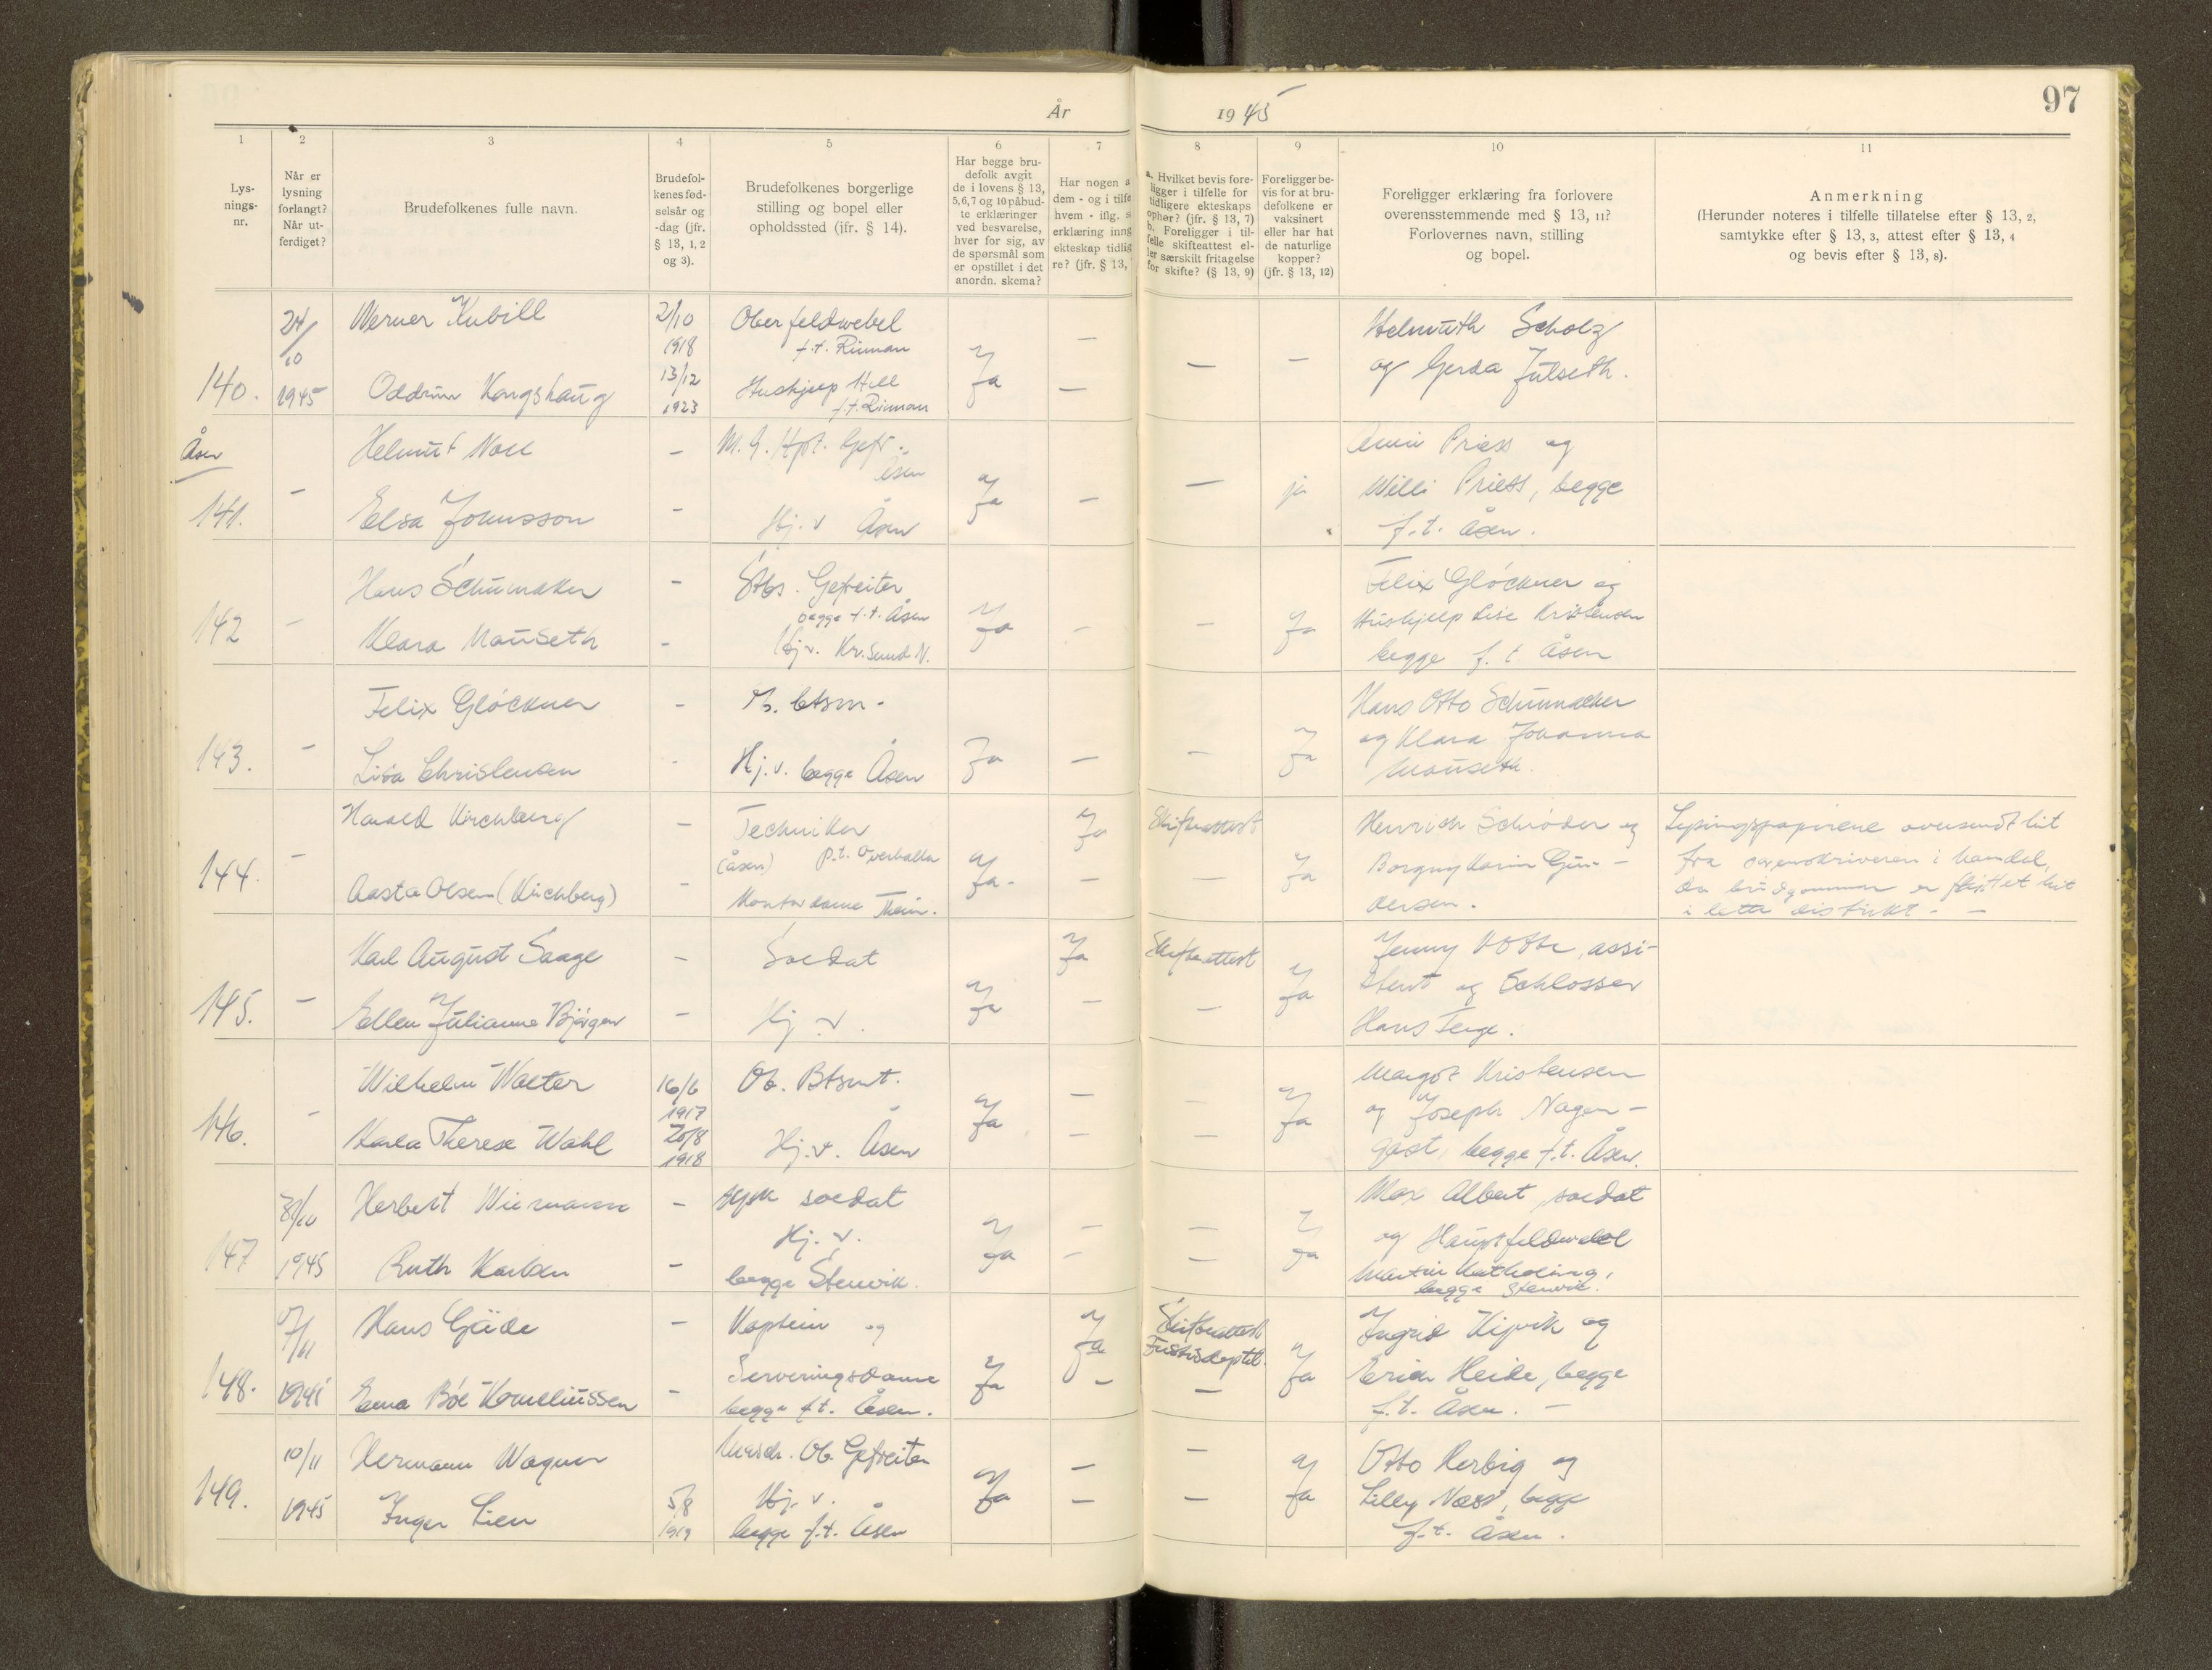 År 1945
97
1
2
3
4
5
6
7
8
9
10
11
Lys-
nings-
nr.
Når er
lysning
forlangt?
Når ut-
ferdiget?
Brudefolkenes fulle navn.
Brudefol-
kenes fød-
selsår og
-dag (jfr.
§ 13, 1, 2
og 3).
Brudefolkenes borgerlige
stilling og bopel eller
opholdssted (jfr. § 14).
Har begge bru-
defolk avgit
de i lovens § 13,
5, 6, 7 og 10 påbud-
te erklæringer
ved besvarelse,
hver for sig, av
de spørsmål som
er opstillet i det
anordn. skema?
Har nogen a
dem - og i tilfe
hvem - iflg. s
erklæring inng
ekteskap tidlig
re? (jfr. § 13,
a. Hvilket bevis fore-
ligger i tilfelle for
tidligere ekteskaps
ophør? (jfr. § 13, 7)
b. Foreligger i til-
felle skifteattest el-
ler særskilt fritagelse
for skifte? (§ 13, 9)
Foreligger be-
vis for at bru-
defolkene er
vaksinert
eller har hat
de naturlige
kopper?
(jfr. § 13, 12)
Foreligger erklæring fra forlovere
overensstemmende med § 13, 11?
Forlovernes navn, stilling
og bopel.
Anmerkning
(Herunder noteres i tilfelle tillatelse efter § 13, 2,
samtykke efter § 13, 3, attest efter § 13, 4
og bevis efter § 13, 8).
140.
24/10
1945
Werner Kubill
Oddrun Kongshaug
2/10
1918
13/12
1923
Oberfeldwebel
f.t. Rinnan
Huskjelp Hell
f.t. Rinnan
Ja
—
—
—
—
Helmuth Scholz
og Gerda Julseth.
Åsen
141.
–
Helmut Noll
Elsa Johnsson
–
–
M.A. Hpt. Gefr.
Åsen
Hj. v Åsen
Ja
–
—
ja
Anni Priess og
Willi Priess, begge
f.t. Åsen.
142
–
Hans Schumaker
Klara Mauseth
–
–
Stbs. Gefreiter
begge f.t. Åsen
Hj. v. Kr.Sund N.
Ja
–
–
Ja
Felix Glöckner og
Hushjelp Lise Kristensen
begge f.t Åsen
143.
–
Felix Glöckner
Lisa Christensen
–
–
B. btsm.
Hj.v. begge Åsen
Ja
–
–
Ja
Hans Otto Schumacker
og Klara Johanna
Mauseth.
144.
–
Harald Kirchberg
Aasta Olsen (Kirchberg)
–
–
Techniker
(Åsen) p.t. Overhalla
Kontordame Trheim.
Ja.
Ja
–
Skifteattest
–
Ja
Henrich Schröder og
Borgny Karin Gun-
dersen.
Lysingspapirene oversendt hit
fra sorenskriveren i Namdal,
da brudgommen er flyttet hit
i dette distrikt. –
145.
–
Karl August Saage
Ellen Julianne Bjørgen
–
–
Soldat
Hj. v.
Ja
Ja
–
Skifteattest
–
Ja
Jenny Votte, assi-
stent og Schlosser
Hans Terge.
146.
–
Wilhelm Walter
Karla Therese Wahl
16/6
1917
20/8
1918
Ob. Btsmt.
Hj. v. Åsen
Ja
–
–
–
–
Ja
Margot Kristensen
og Joseph Nagen-
gast, begge f.t. Åsen.
147
31/10
1945
Herbert Wiemann
Ruth Karlsen
–
–
tysk soldat
Hj. v.
begge Stenvik.
Ja
–
–
–
–
Ja
Max Albert, soldat
og Hauptfeldwebel
Martin Ketheling,
begge Stenvik.
148.
7/11
1945
Hans Gäde
Erna Bøe Korneliussen
–
–
Kaptein og
Serveringsdame
begge f.t. Åsen.
Ja
Ja
–
Skifteattest
–
Ja
Ingrid Kipvik og
Erich Heide, begge
f.t. Åsen. –
149.
10/11
1945
Hermann Wagner
Inger Lien
5/8
1919
Masch. Ob. Gefreiter
Hj. v.
begge f.t. Åsen
Ja
–
–
–
–
Ja
Otto Herbig og
Lilly Næss, begge
f.t. Åsen.